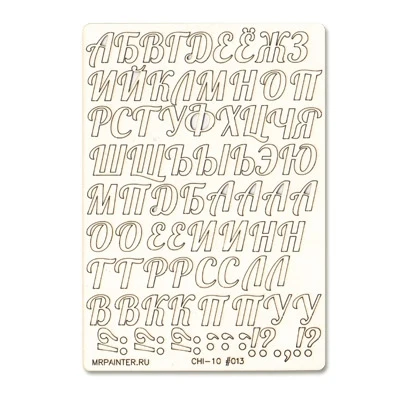 АБВГДЕЁЖЗ
ИЙКЛМНОП
РСТУФХЦЧЯ
ШЩЪЫЬЭЮ
МПДБАААА
ООЕЕИИНН
ГТРРССЛЛ
ВВККПТУУ
!?!?!?::;;!?.,!?
MRPAINTER.RU CHI-10 #013